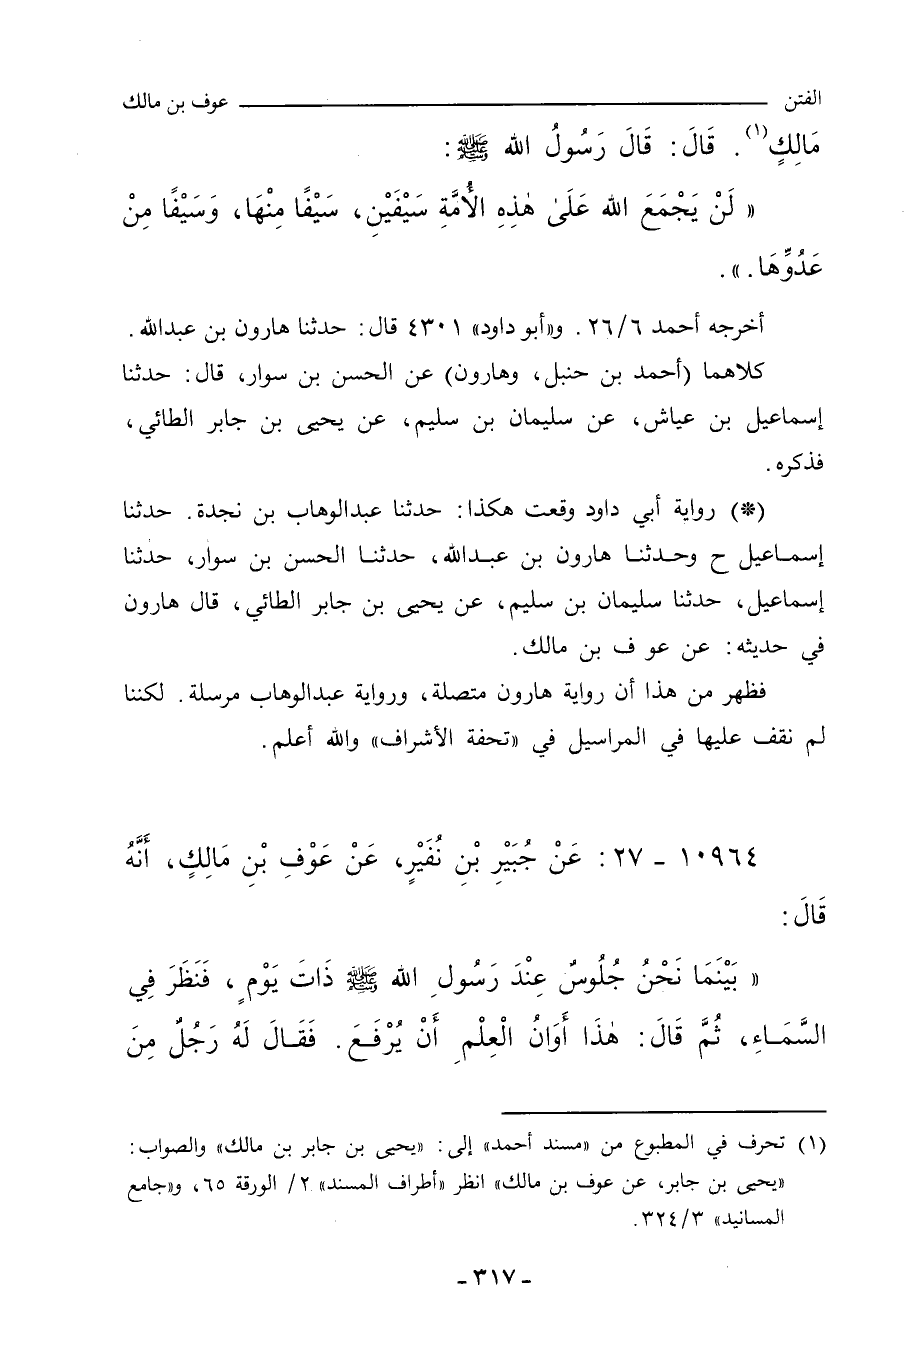 الفتن ــــــــــ عوف بن مالك
مَالِكٍ(١). قَالَ: قَالَ رَسُولُ الله ﷺ:
« لَنْ يَجْمَعَ الله عَلَىٰ هٰذِهِ الأُمَّةِ سَيْفَيْنِ، سَيْفًا مِنْهَا، وَسَيْفًا مِنْ
عَدُوِّهَا. ».
أخرجه أحمد ٢٦/٦. و«أبو داود» ٤٣٠١ قال: حدثنا هارون بن عبدالله.
كلاهما (أحمد بن حنبل، وهارون) عن الحسن بن سوار، قال: حدثنا
إسماعيل بن عياش، عن سليمان بن سليم، عن يحيى بن جابر الطائي،
فذكره.
(*) رواية أبي داود وقعت هكذا: حدثنا عبدالوهاب بن نجدة. حدثنا
إسماعيل ح وحدثنا هارون بن عبدالله، حدثنا الحسن بن سوار، حدثنا
إسماعيل، حدثنا سليمان بن سليم، عن يحيى بن جابر الطائي، قال هارون
في حديثه: عن عو ف بن مالك.
فظهر من هذا أن رواية هارون متصلة، ورواية عبدالوهاب مرسلة. لكننا
لم نقف عليها في المراسيل في «تحفة الأشراف» والله أعلم.
١٠٩٦٤ ـ ٢٧: عَنْ جُبَيْرِ بْنِ نُفَيْرٍ، عَنْ عَوْفِ بْنِ مَالِكٍ، أَنَّهُ
قَالَ:
« بَيْنَمَا نَحْنُ جُلُوسٌ عِنْدَ رَسُولِ الله ﷺ ذَاتَ يَوْمٍ، فَنَظَرَ فِي
السَّمَاءِ، ثُمَّ قَالَ: هٰذَا أَوَانُ الْعِلْمِ أَنْ يُرْفَعَ. فَقَالَ لَهُ رَجُلٌ مِنَ
(١) تحرف في المطبوع من «مسند أحمد» إلى: «يحيى بن جابر بن مالك» والصواب:
«يحيى بن جابر، عن عوف بن مالك» انظر «أطراف المسند» ٢/ الورقة ٦٥، و«جامع
المسانيد» ٣٢٤/٣.
ـ ٣١٧ ـ